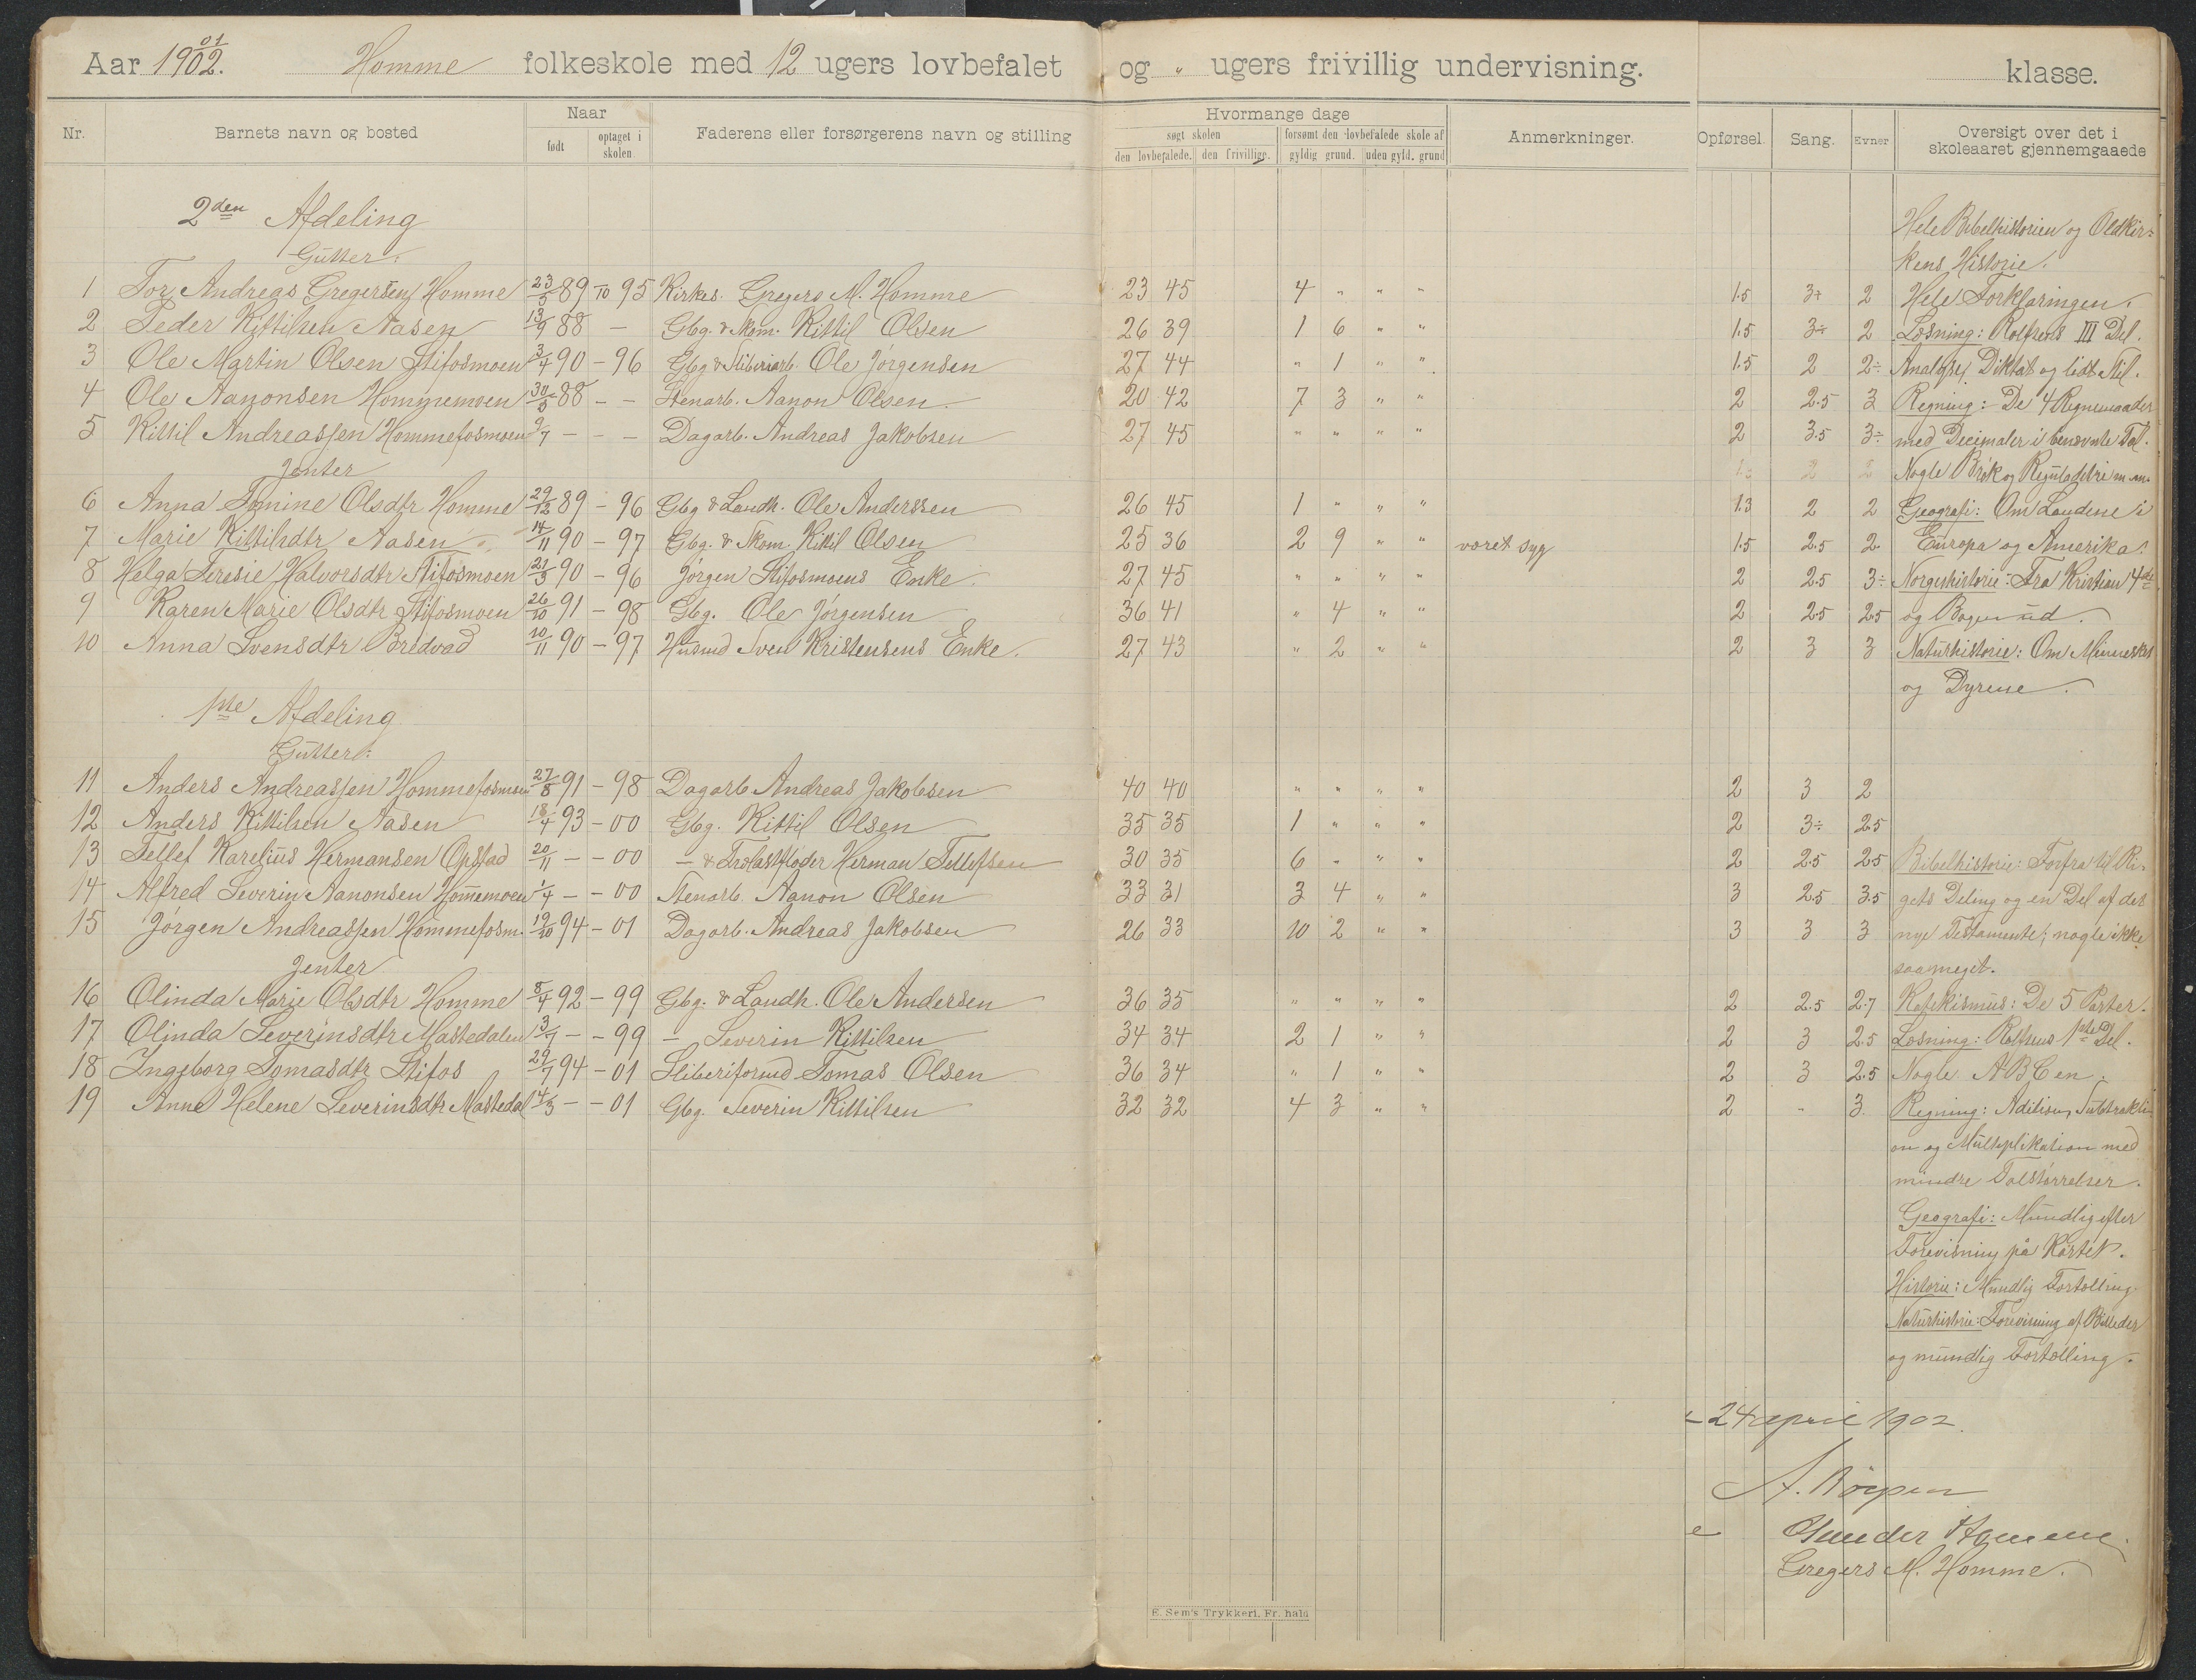 Aar 1901/02. Homme folkeskole med 12 ugers lovbefalet og " ugers frivillig undervisning. klasse.
Nr. Barnets navn og bosted Naar født optaget i skolen Faderens eller forsørgerens navn og stilling Hvormange dage søgt skolen den lovbefalede. den frivillige. forsømt den lovbefalede skole af gyldig grund. uden gyld. grund Anmerkninger. Opførsel. Sang. Evner Oversigt over det i skoleaaret gjennemgaaede
2den Afdeling Hele Bibelhistorien og Oldkir=
Gutter. kens Historie.
1 Tor Andreas Gregersen Homme 23/5 89 - 10 95 Kirkes. Gregers M. Homme 23 45 4 " " " 1.5 3÷ 2 Hele Forklaringen.
2 Peder Kittilsen Aasen 13/9 88 - Gbg. & Skom. Kittil Olsen 26 39 1 6 " " 1.5 3÷ 2 Læsning: Rolfsens III Del.
3 Ole Martin Olsen Stifosmoen 3/4 90 - 96 Gbg & Sliberiarb. Ole Jørgensen 27 44 " 1 " " 1.5 2 2÷ Analyse, Diktat og lidt Stil.
4 Ole Aanonsen Hommemoen 30/5 88 - - Stenarb. Aanon Olsen. 20 42 7 3 " " 2 2.5 3 Regning: De 4 Regnemaader
5 Kittil Andreassen Hommefosmoen 9/7 - - - Dagarb. Andreas Jakobsen 27 45 " " " " 2 3.5 3÷ med Decimaler i benævnte Tal.
Jenter 2 2 Nogle Brøk og Reguladetri m.m.
6 Anna Tomine Olsdtr Homme 29/12 89 - 96 Gbg & Landh. Ole Anderssen 26 45 1 " " " 1.3 2 2 Geografi: Om Landene i
7 Marie Kittilsdtr Aasen 14/11 90 - 97 Gbg. & Skom. Kittil Olsen 25 36 2 9 " " været syg 1.5 2.5 2 Europa og Amerika.
8 Helga Teresie Halvorsdtr Stifosmoen 21/3 90 - 96 Jørgen Stifosmoens Enke. 27 45 " " " " 2 2.5 3÷ Norgeshistorie: Fra Kristian 4de
9 Karen Marie Olsdtr Stifosmoen 26/10 91 - 98 Gbg. Ole Jørgensen 36 41 " 4 " " 2 2.5 2.5 og Bogen ud.
10 Anna Svensdtr Bredvad 10/11 90 - 97 Husmd Sven Kristensens Enke. 27 43 " 2 " " 2 3 3 Naturhistorie: Om Mennesket
og Dyrene.
1ste Afdeling
Gutter:
11 Anders Andreassen Hommefosmoen 27/8 91 - 98 Dagarb Andreas Jakobsen 40 40 " " " " 2 3 2
12 Anders Kittilsen Aasen 18/4 93 - 00 Gbg. Kittil Olsen 35 35 1 " " " 2 3÷ 2.5
13 Tellef Karelius Hermansen Opstad 20/11 - - 00 - & Herman Tellefsen 30 35 6 " " " 2 2.5 2.5 Bibelhistorie: Forfra til Ri-
14 Alfred Severin Aanonsen Hommemoen 1/4 - - 00 Stenarb. Aanon Olsen 33 31 3 4 " " 3 2.5 3.5 gets Deling og en Del af det
15 Jørgen Andreassen Hommefosm. 19/10 94 - 01 Dagarb. Andreas Jakobsen 26 33 10 2 " " 3 3 3 nye Testamente, nogle ikke
Jenter saa meget.
16 Olinda Marie Olsdtr Homme 8/4 92 - 99 Gbg. & Landh. Ole Andersen 36 35 " " " " 2 2.5 2.7 Katekismus: De 5 Parter.
17 Olinda Severinsdtr Mastedalen 3/7 - - 99 - Severin Kittilsen 34 34 2 1 " " 2 3 2.5 Læsning: Rolfsens 1ste Del.
18 Ingeborg Tomasdtr Stifos 29/7 94 - 01 Sliberiformd Tomas Olsen 36 34 " 1 " " 2 3 2.5 Nogle ABCen.
19 Anne Helene Severinsdtr Mastedal 14/3 - - 01 Gbg. Severin Kittilsen 32 32 4 3 " " 2 - 3. Regning: Adition, Subtrakti-
on og Multiplikation med
mindre Talstørrelser.
Geografi: Mundlig efter
Forevisning på Kartet.
Historie: Mundlig Fortælling.
Naturhistorie: Forevisning af Billeder
og mundlig Fortælling.
24 april 1902.
Gunder Homme.
Gregers M. Homme.
E. Sem's Trykkeri, Fr. hald